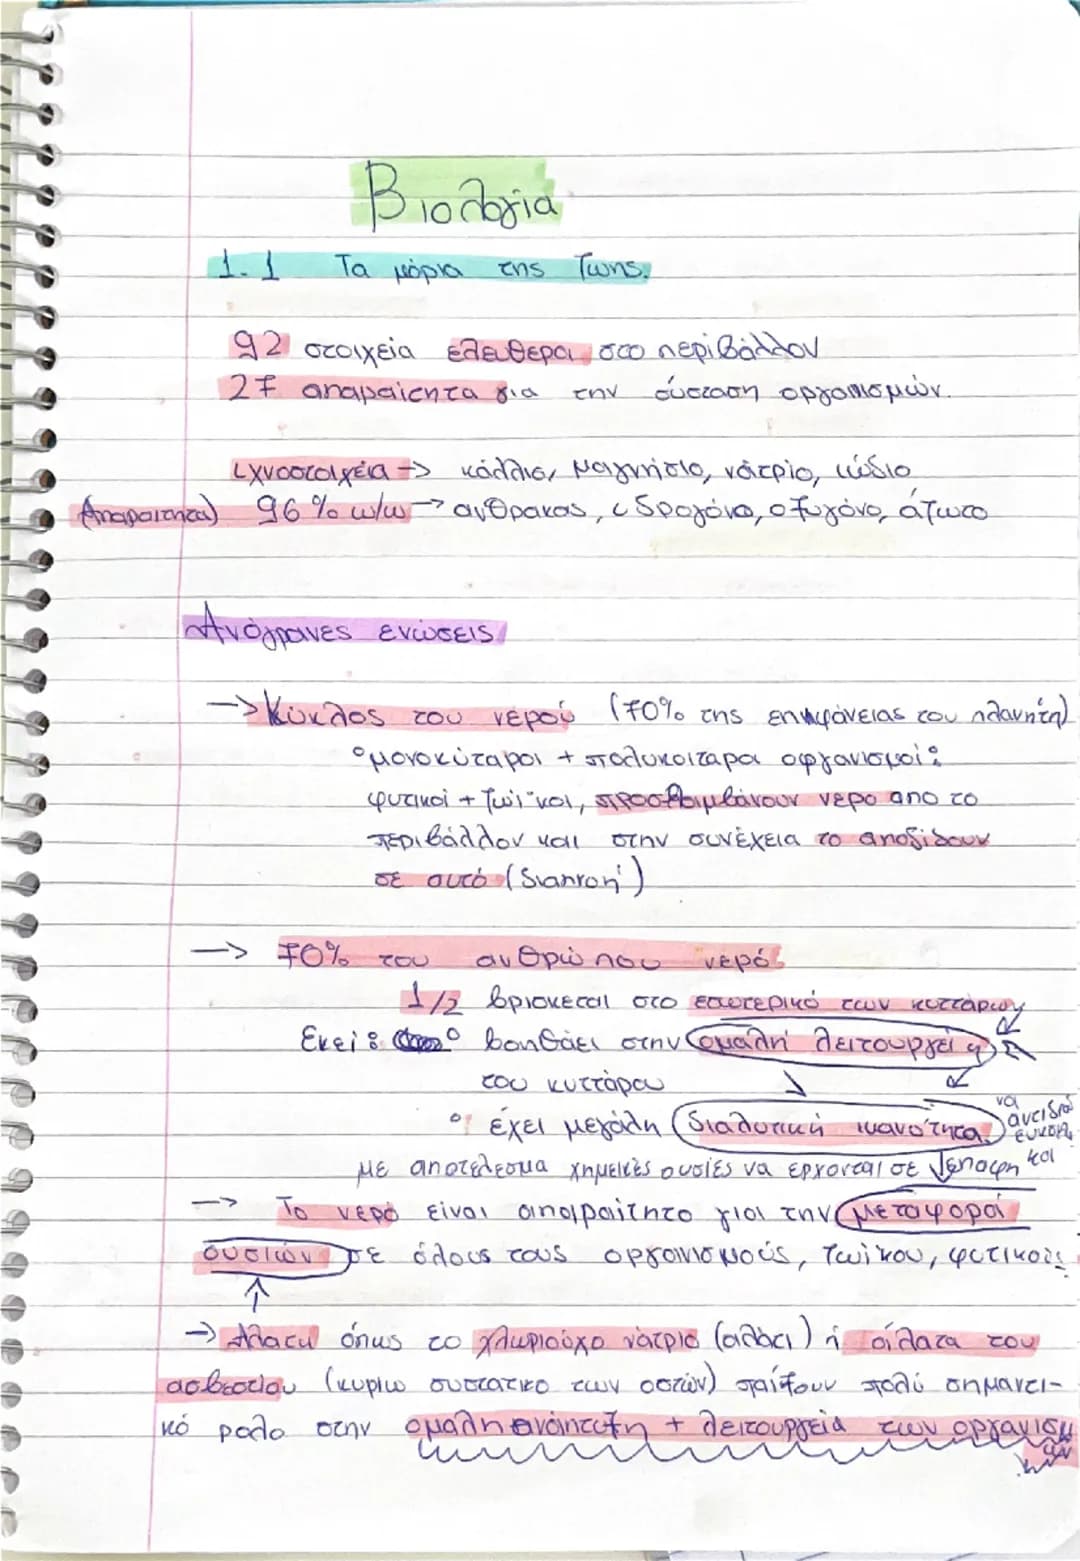 Βιολογία
1.1 Τα μόρια της ζωής.
92 στοιχεία ελευθερα στο περιβάλλον
27 απαραίτητα για την σύσταση οργανισμών.
ιχνοστοιχεία → κάλλιο, μαγνήσιο, νάτριο, ιώδιο
Απαραίτητα) 96% w/w → ανθρακας, υδρογόνο, οξυγόνο, άζωτο
Ανόργανες ενώσεις
→ Κύκλος του νερού (70% της επιφάνειας του πλανήτη)
°μονοκύταροι + πολυκοιταροι οργανισμοί:
φυτικοί + ζωϊκοι, προσλαμβάνουν νερο απο το
περιβάλλον και στην συνέχεια το αποδίδουν
σε αυτό (διαπνοή)
→ 70% του ανθρώπου νερό.
1/2 βρισκεται στο εσωτερικό των κυττάρων
Εκεί: ° βοηθάει στην ομαλή λειτουργεία
του κυττάρου
° έχει μεγάλη διαλυτική ικανότητα. να αντιδρ ευκολα και
με αποτέλεσμα χημεικές ουσίες να ερχονται σε επαφη
→ Το νερό είναι απαραίτητο για την μεταφορά
ουσιών σε όλους τους οργανισμούς, ζωϊκου, φυτικούς
→ Αλατα όπως το χλωριούχο νάτριο (αλάτι) ή άλατα του
ασβεστίου (κυριω συστατικο των οστών) παίζουν πολύ σημαντι-
κό ρολο στην ομαλη ανάπτυξη + λειτουργεία των οργανισμ
ών